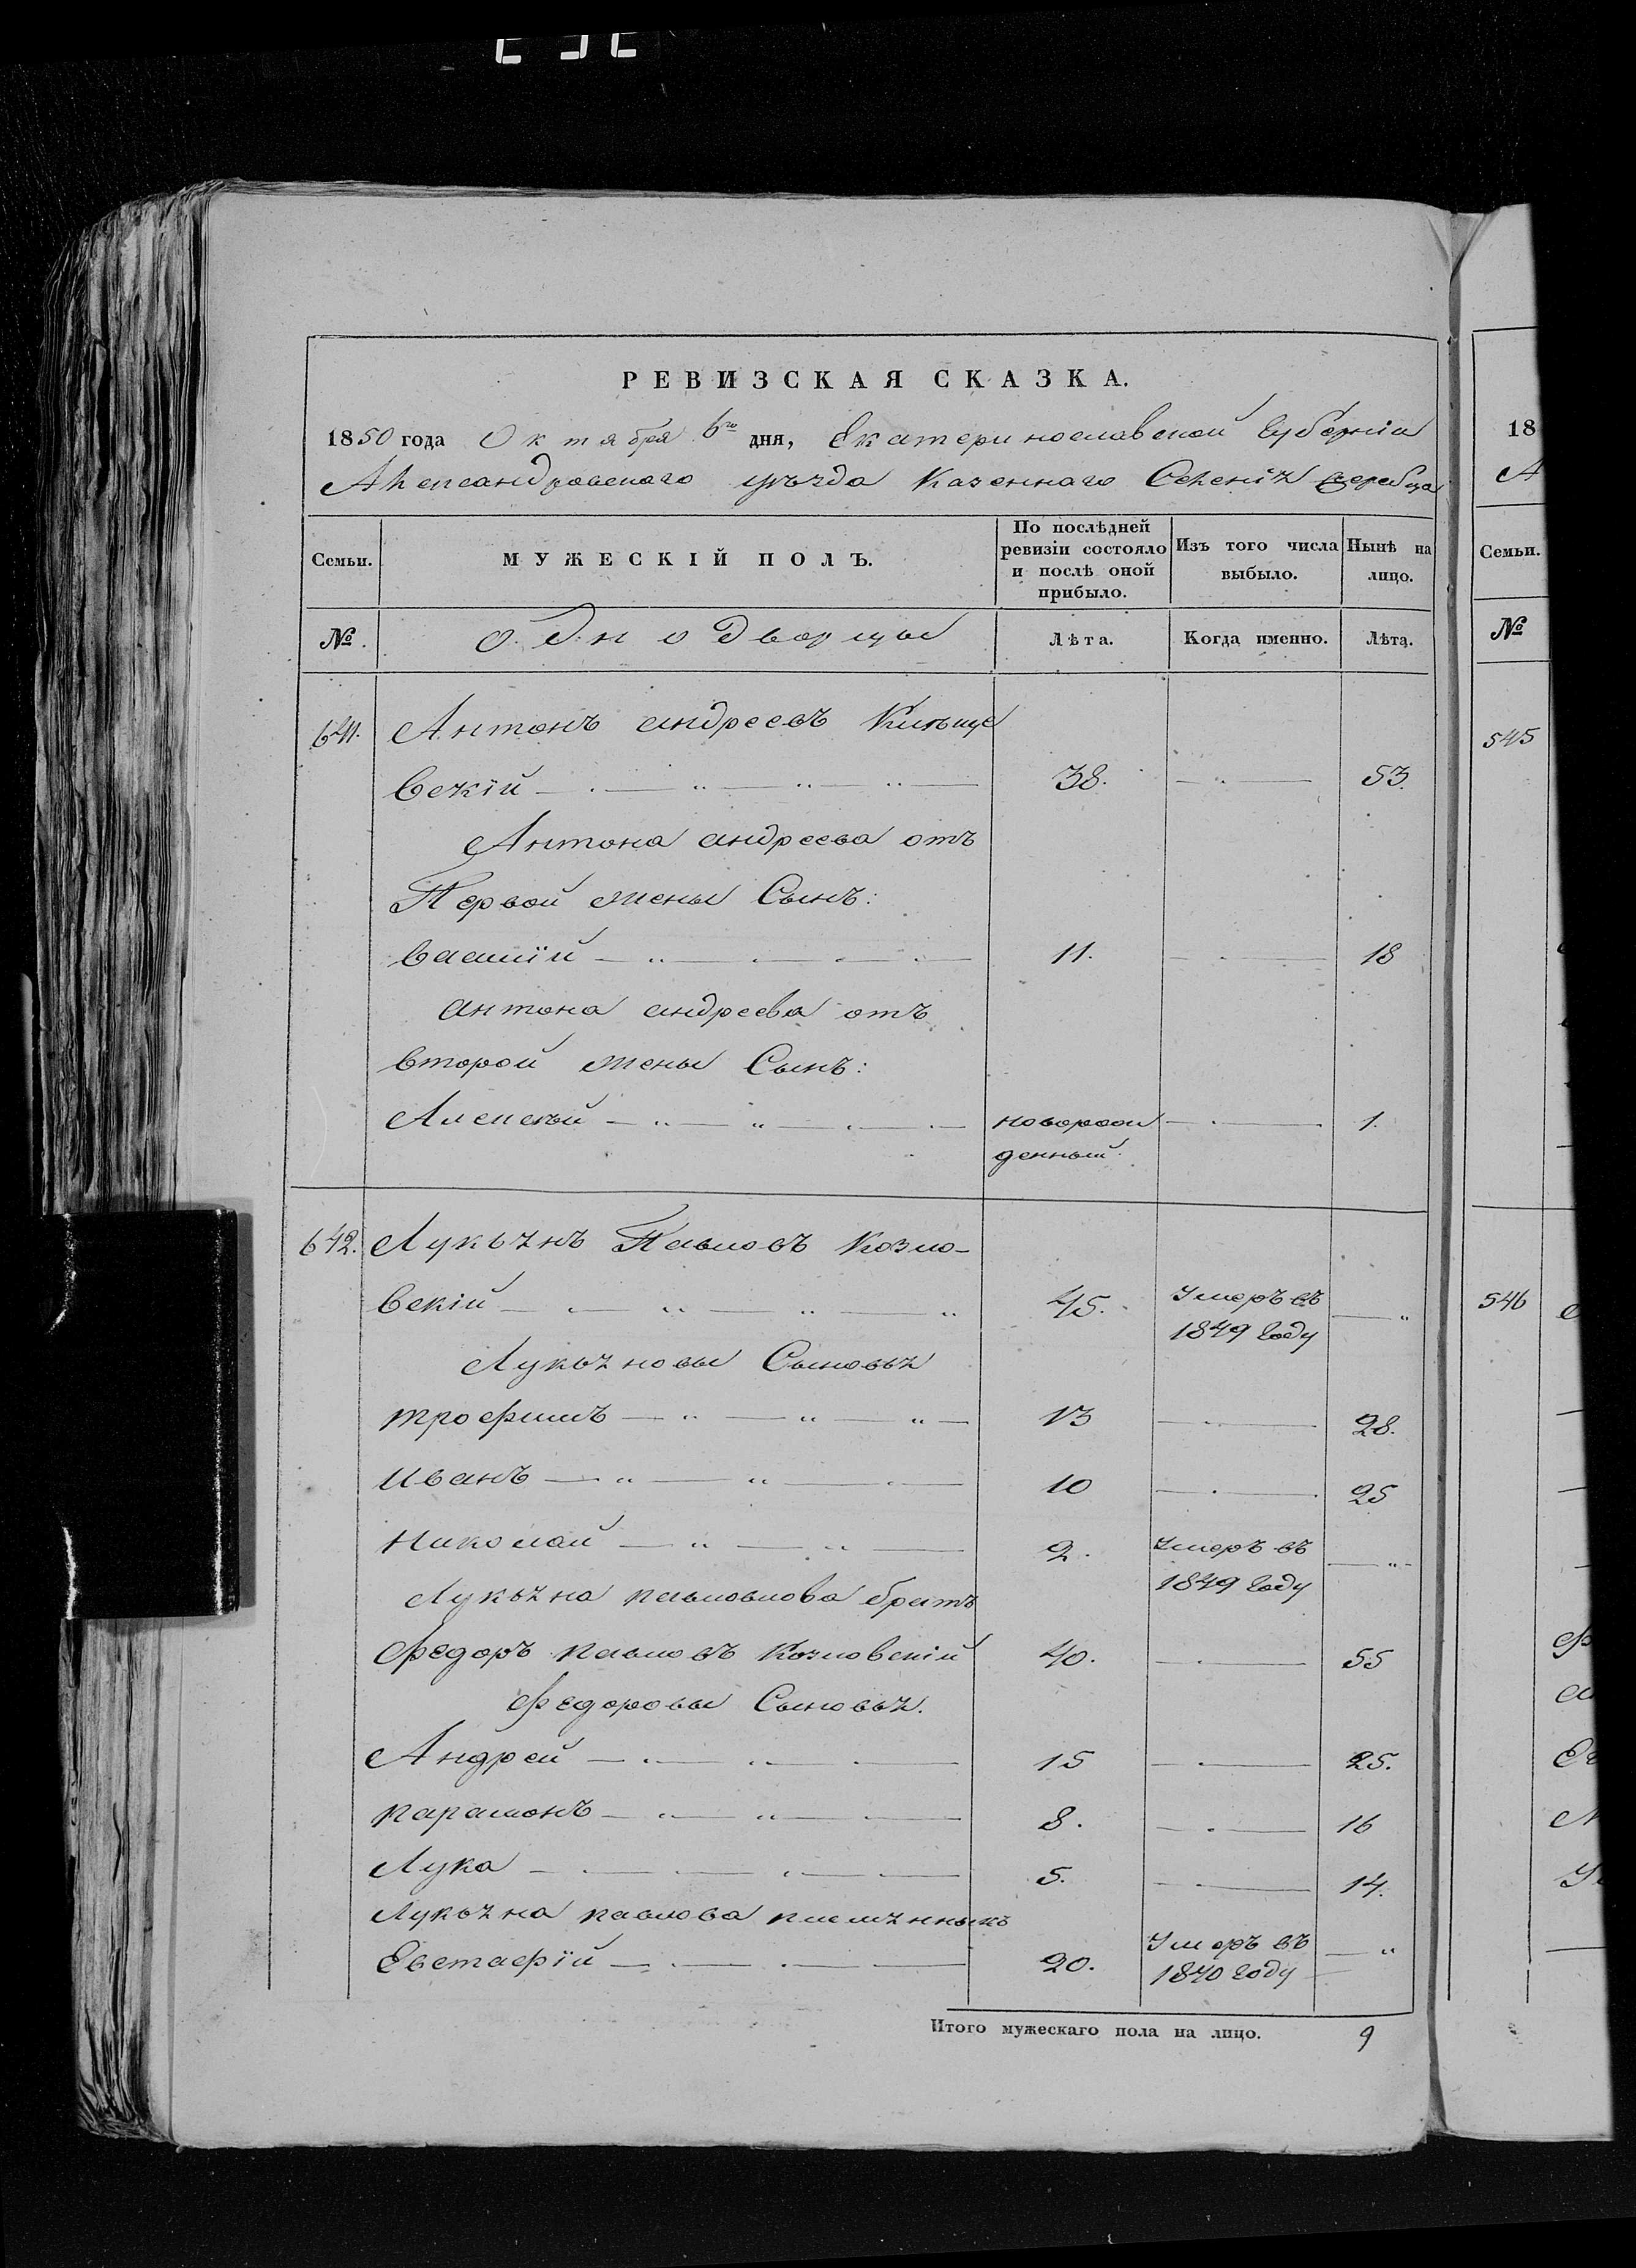 РЕВИЗСКАЯ СКАЗКА.
1850 года Октября 6го дня, Екатеринославской Губерніи
Александровскаго уѣзда Казеннаго Селенія Жеребца
Семьи. МУЖЕСКІЙ ПОЛЪ. По послѣдней ревизіи состояло и послѣ оной прибыло. Изъ того числа выбыло. Нынѣ на лицо.
№. Однодворцы Лѣта. Когда именно. Лѣта.
641. Антонъ Андреевъ
вскій 38. 53.
Антона Андреева отъ
Первой жены Сынъ:
Василій 11. 18
Антона Андреева отъ
второй жены Сынъ:
Алексѣй новорож 1.
денный.
642. Лукьянъ Павловъ Козло-
вскій 45. Умеръ въ
1849 Году
Лукьяновы Сыновья
Трофимъ 13 28.
Иванъ 10 25
Николай 2. Умеръ въ
1849 Году
Лукьяна Павлова братъ
Федоръ Павловъ Козловскій 40. 55
Федоровы Сыновья.
Андрей 15 25.
Парамонъ 8. 16
Лука 5. 14.
Лукьяна Павлова племянникъ
Евстафій 20. Умеръ въ
1840 Году
Итого мужескаго пола на лицо. 9
18
А
Семьи.
№
545
546